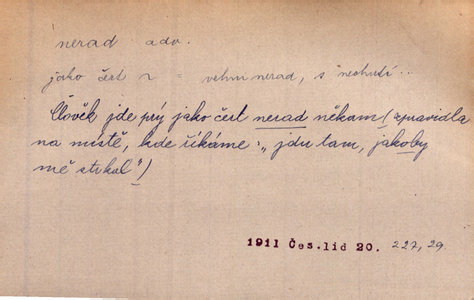 nerad adv.
jako čert n = velmi nerad, s nechutí..
Člověk jde prý jako čert nerad někam (zpravidla
na místě, kde říkáme: „jdu tam, jakoby
mě strkal")
1911 Čes.lid 20. 227, 29.